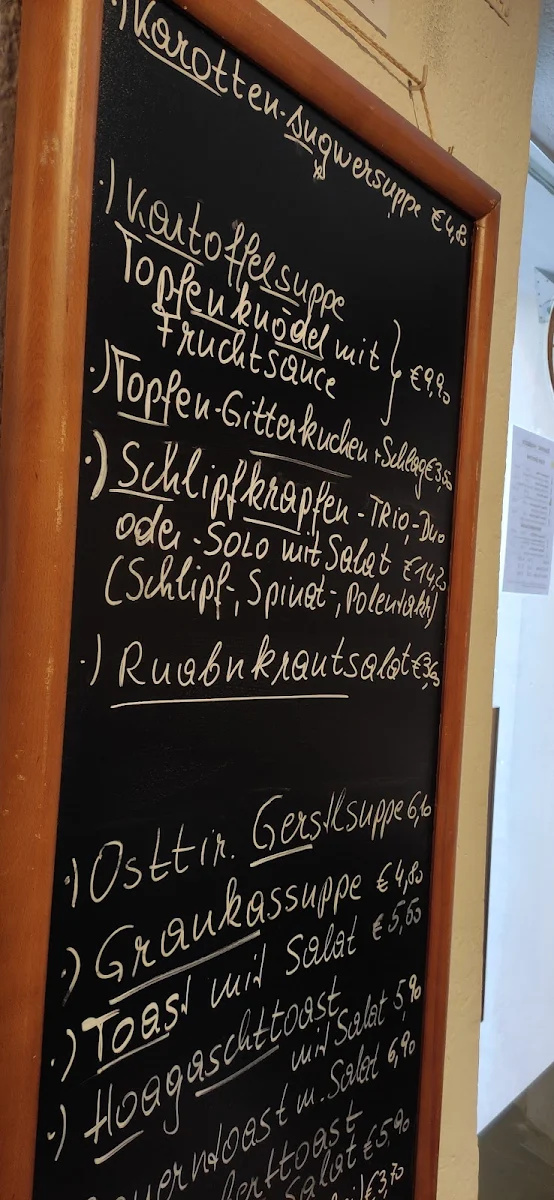 ·) Karotten-Ingwersuppe € 4,80
·) Kartoffelsuppe
Topfenknödel mit
Fruchtsauce } € 9,90
·) Topfen-Gitterkuchen + Schlag € 3,50
·) Schlipfkrapfen - TRIO,- Duo
oder -SOLO mit Salat € 14,20
(Schlipf-, Spinat-, Polentakr)
·) Ruabnkrautsalat € 3,60
·) Osttir. Gerstlsuppe 6,10
·) Graukassuppe € 4,80
·) Toast mit Salat € 5,60
·) Hoagaschttoast
mit Salat 5,90
m. Salat 6,90
Salat € 5,90
€ 3,70